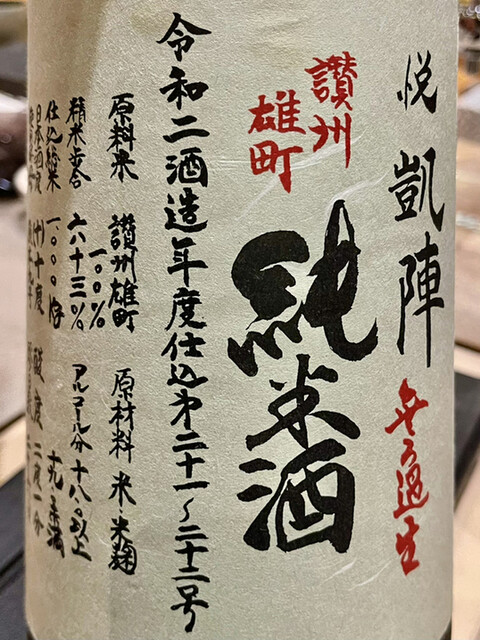 悦 凱陣 無ろ過生
讃州
雄町
純米酒
令和二酒造年度仕込第二十一〜二十二号
原料米 讃州雄町 原材料 米・米麹
一〇〇%
精米歩合 六十三% アルコール分 十八度以上
仕込総米 一、〇〇〇kg 十九度未満
日本酒度 (+)十度 酸度 二度一分